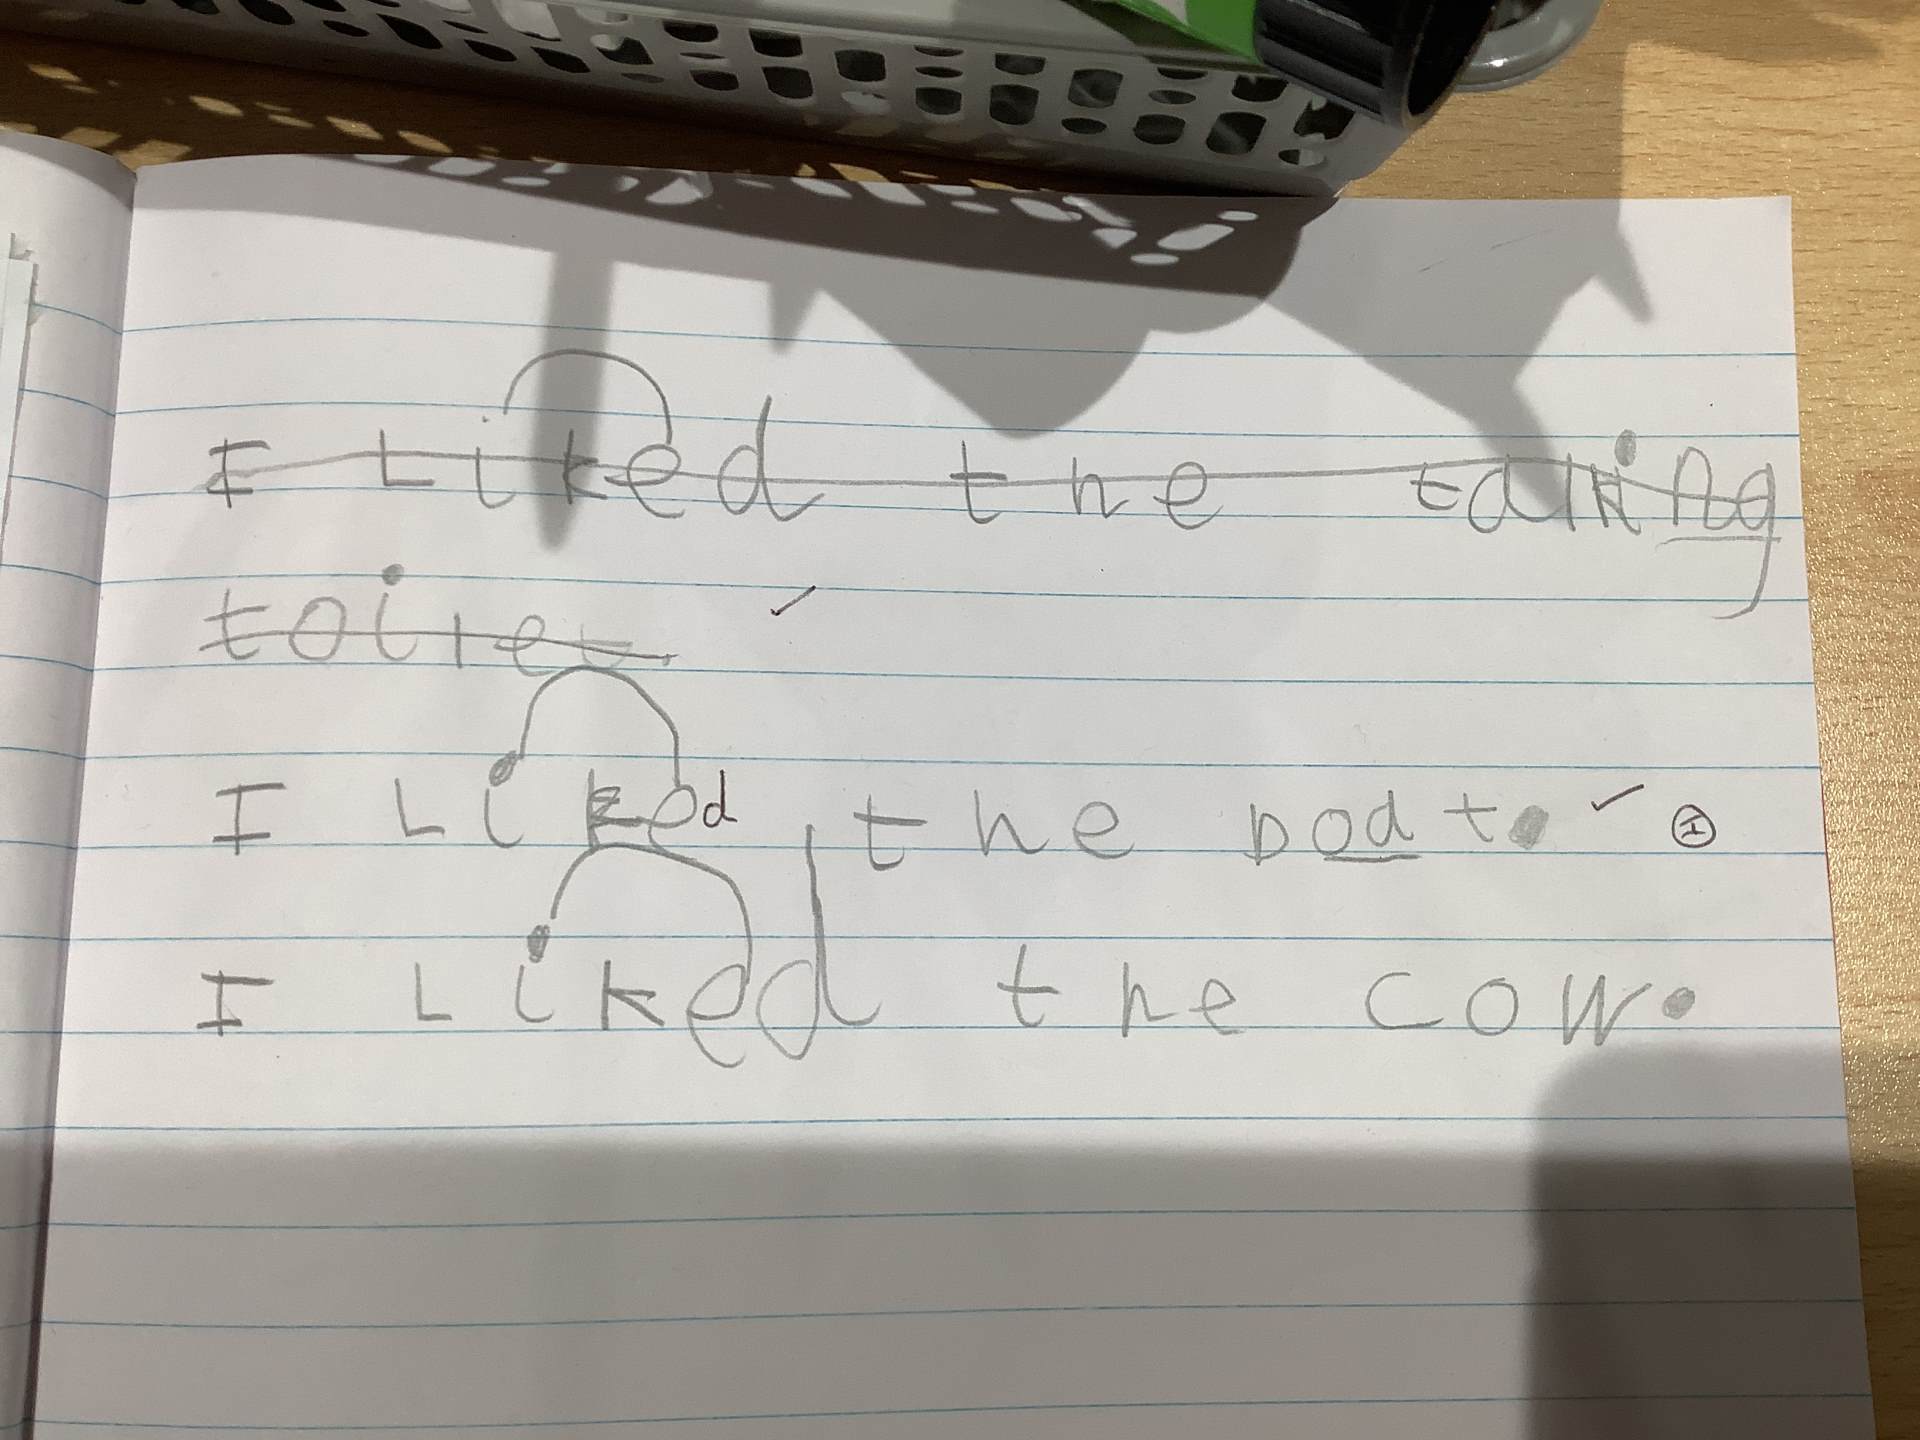 I Liked the talking
toilet.
I Liked the boat. ✓ I
I Liked the cow.